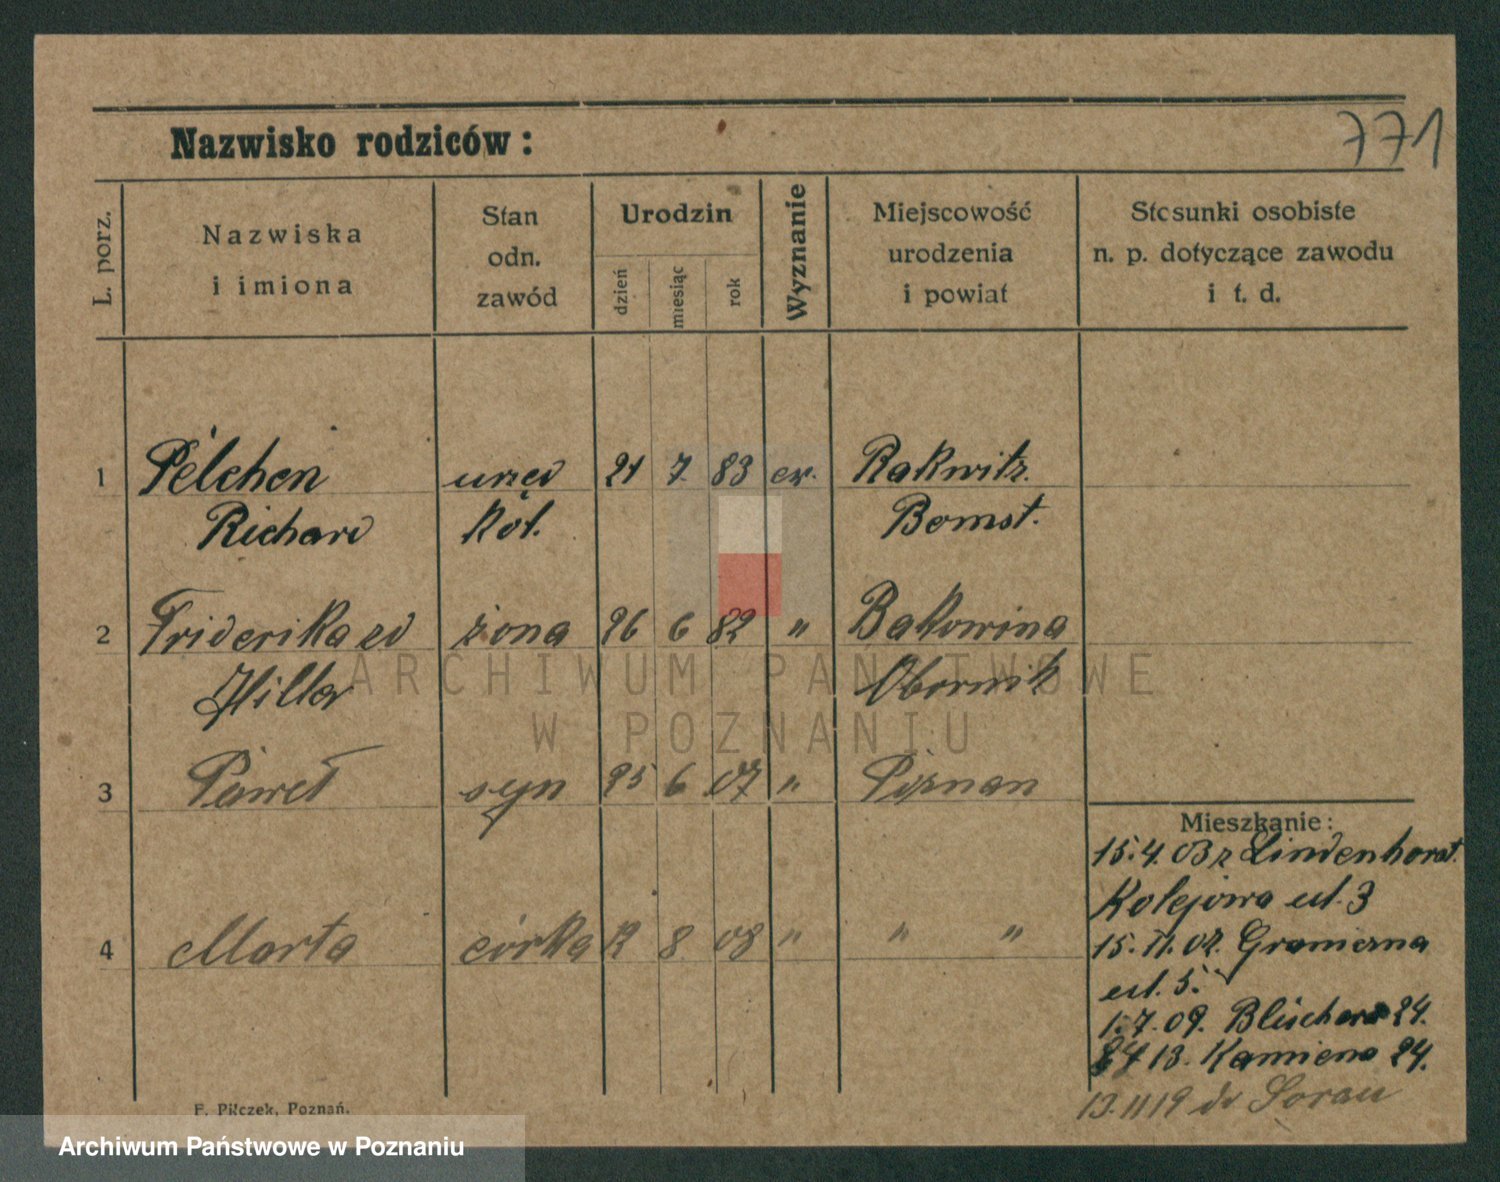 Nazwisko rodziców:
771
L. porz.
Nazwiska
i imiona
Stan
odn.
zawód
Urodzin
dzień
miesiąc
rok
Wyznanie
Miejscowość
urodzenia
i powiat
Stosunki osobiste
n. p. dotyczące zawodu
i t. d.
1 Pelchen urzęd 21 7. 83 ew. Rakwitz.
Richard kol. Bomst.
2 Friderika zd żona 26 6 82 " Bakowina
Hiller Obornik
3 Paweł syn 25 6 07 " Poznan
4 Marta córka 12 8 08 " " "
Mieszkanie:
15.4.03 z Lindenhorst.
Kolejowa ul. 3
15.11.07. Graniczna
ul. 5.
1.7.09. Blüchera 24.
13. Kamiena 24.
13.11 19 do Sorau
F. Pilczek, Poznań.
ARCHIWUM PAŃSTWOWE
W POZNANIU
Archiwum Państwowe w Poznaniu